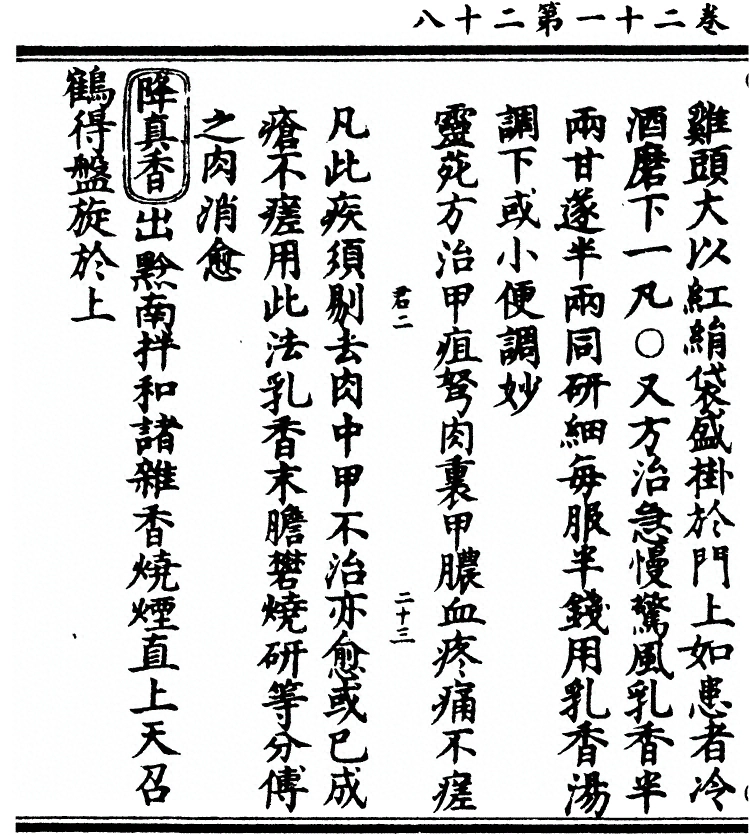 卷二十一第二十八
雞頭大以紅絹袋盛掛於門上如患者冷
酒磨下一凡〇又方治急慢驚風乳香半
兩甘遂半兩同研細每服半錢用乳香湯
調下或小便調妙
靈苑方治甲疽弩肉裏甲膿血疼痛不瘥
君二
二十三
凡此疾須剔去肉中甲不治亦愈或已成
瘡不瘥用此法乳香末膽礬燒研等分傅
之肉消愈
降真香出黔南拌和諸雜香燒煙直上天召
鶴得盤旋於上